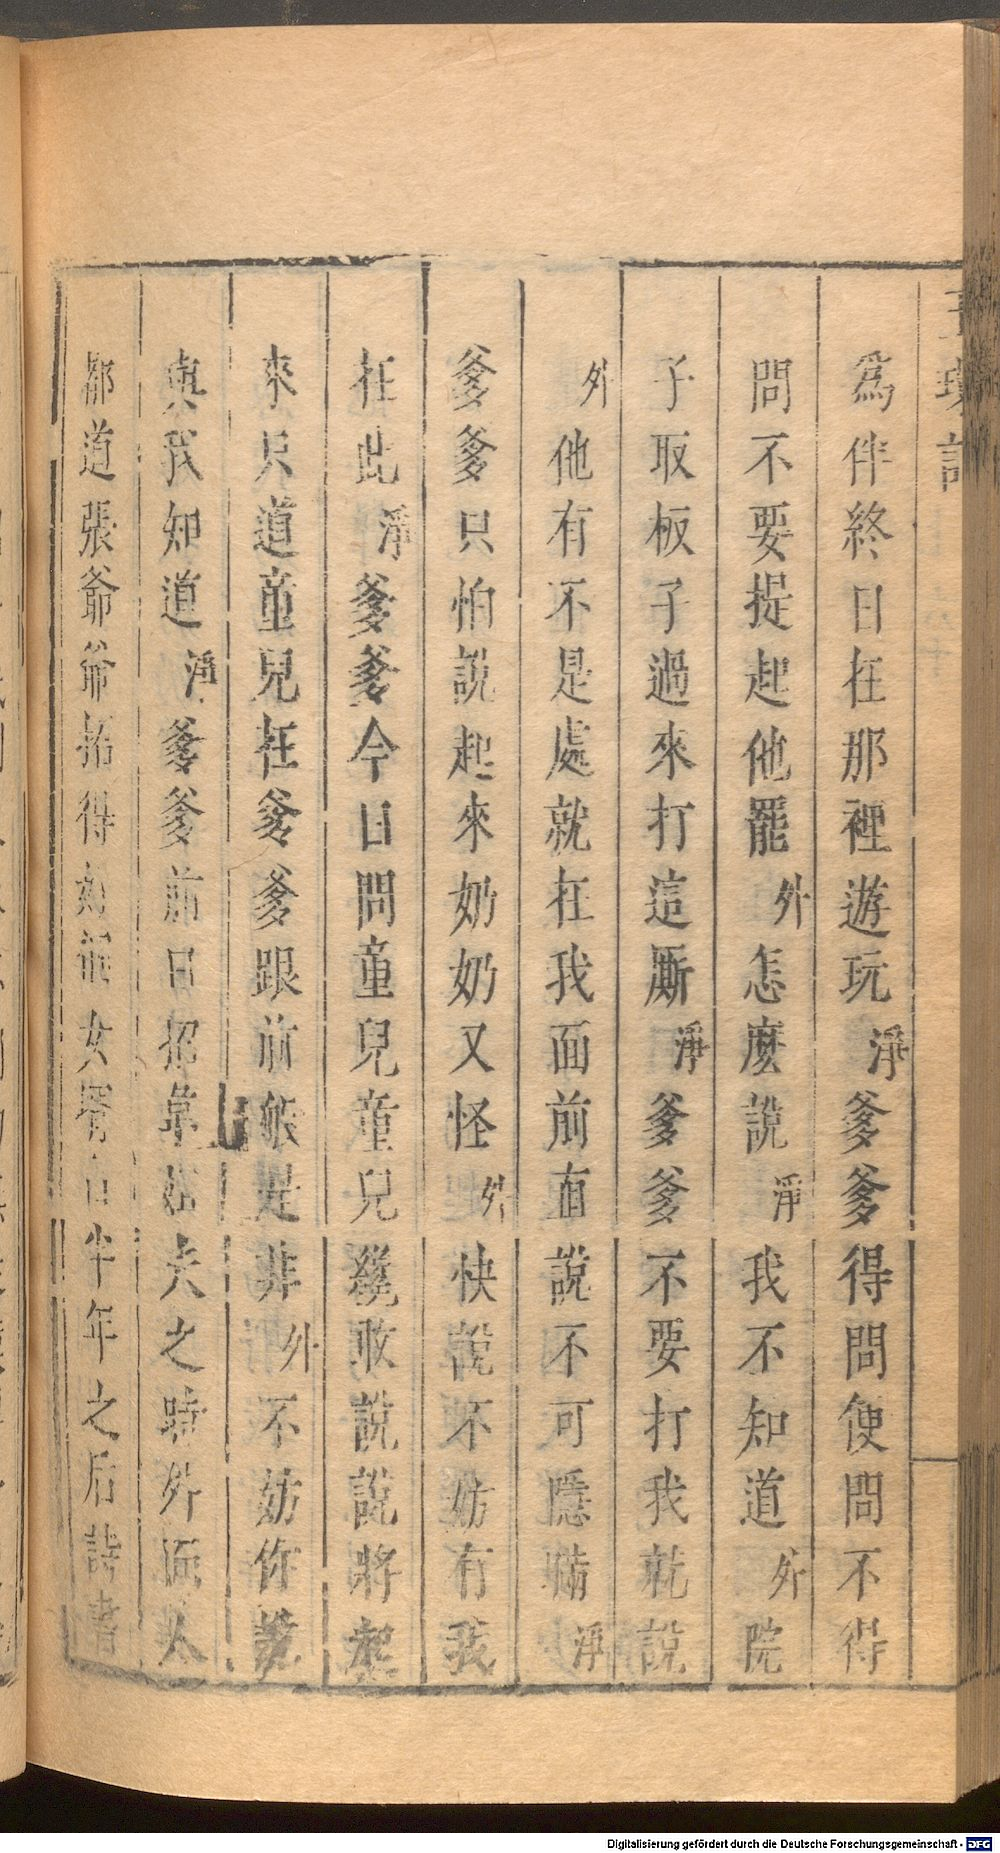 為伴終日在那裡遊玩淨爹爹得問便問不得
問不要提起他罷外怎麼說淨我不知道外院
子取板子過來打這厮淨爹爹不要打我就說
外他有不是處就在我面前直說不可隱瞞淨
爹爹只怕說起來奶奶又怪外快說不妨有我
在此淨爹爹今日問童兒童兒纔敢說說將起
來只道童兒在爹爹跟前搬是非外不妨你說
與我知道淨爹爹前日招章姐夫之時外面人
都道張爺爺拓得好個女壻半年之后詩書
Digitalisierung gefördert durch die Deutsche Forschungsgemeinschaft - DFG